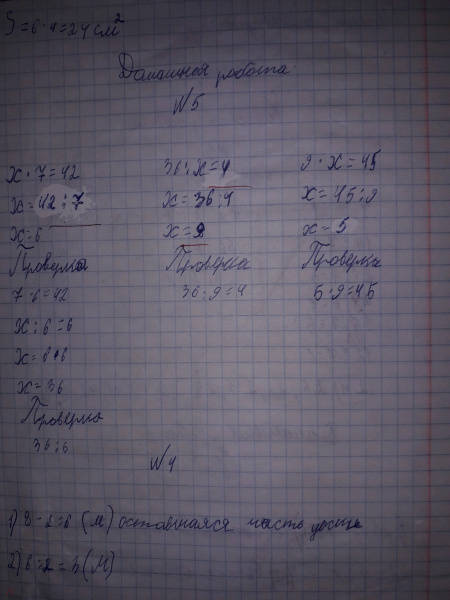 S=6·4=24 см²
Домашняя работа.
№5
x·7=42 36:x=4 9·x=45
x=42:7 x=36:4 x=45:9
x=6 x=9 x=5
Проверка Проверка Проверка
7·6=42 36:9=4 5·9=45
x:6=6
x=6·6
x=36
Проверка
36:6
№4
1) 8-2=6 (м) оставшаяся часть
2) 6:2=3 (м)